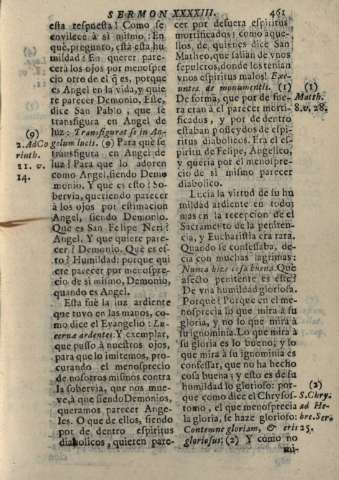 SERMON XXXXIII. 461
esta respuesta! Como se
envilece à si mismo! En
què, pregunto, està esta hu-
mildad? En querer pare-
cer à los ojos por menospre-
cio otro de el q̃ es, porque
es Angel en la vida, y quie
re parecer Demonio. Este,
dice San Pablo, que se
transfigura en Angel de
luz: Transfigurat se in An-
gelum lucis. (9) Para què se
transfigura en Angel de
luz? Para que lo adoren
como Angel, siendo Demo
monio. Y que es esto? So-
bervia, queriendo parecer
à los ojos por estimacion
Angel, siendo Demonio.
Que es San Felipe Neri?
Angel. Y que quiere pare-
cer? Demonio. Què es es-
to? Humildad: porque qui
ere parecer por menospre-
cio de si mismo, Demonio,
quando es Angel.
Esta fuè la luz ardiente
que tuvo en las manos, co-
mo dice el Evangelio: Lu-
cernæ ardentes. Y exemplar,
que pusso à nuestros ojos,
para que lo imitemos, pro-
curando el menosprecio
de nosotros mismos contra
la sobervia, que nos mue-
ve, à que siendo Demonios,
queramos parecer Ange-
les. O que de ellos, siendo
por de dentro espiritus
diabolicos, quieren pare-
(9)
2. Ad Co
rinth.
11. v.
14.
cer por defuera espiritus
mortificados! como aque-
llos, de quienes dice San
Matheo, que salian de vnos
sepulcros, donde los tenian
vnos espiritus malos! Exe-
untes de monumentis. (1)
De forma, que por de fue-
ra eran à el parecer morti-
ficados, y por de dentro
estaban posseydos de espiri-
tus diabolicos. Era el es-
piritu de Felipe, Angelico,
y queria por el menospre-
cio de si mismo parecer
diabolico.
Lucia la virtud de su hu
mildad ardiente en todo;
mas en la recepcion de el
Sacramento de la peniten-
cia, y Eucharistia era rara.
Quando se confessaba, de-
cia con muchas lagrimas:
Nunca hice cosa buena. Que
afecto penitente es este?
De vna humildad gloriosa.
Porque? Porque en el me-
nosprecia lo que mira à su
gloria, y no lo que mira à
su ignominia. Lo que mira à
su gloria es lo bueno; y lo
que mira à su ignominia es
confessar, que no ha hecho
cosa buena; y esto es de su
humildad lo glorioso: por-
que como dice el Chrysos-
tomo, el que menosprecia
la gloria, se haze glorioso:
Contemne gloriam, & eris
gloriosus: (2) Y como no
mi-
(1)
Matth.
8. v. 28.
(2)
S. Chry.
ad He-
bre. Ser.
25.